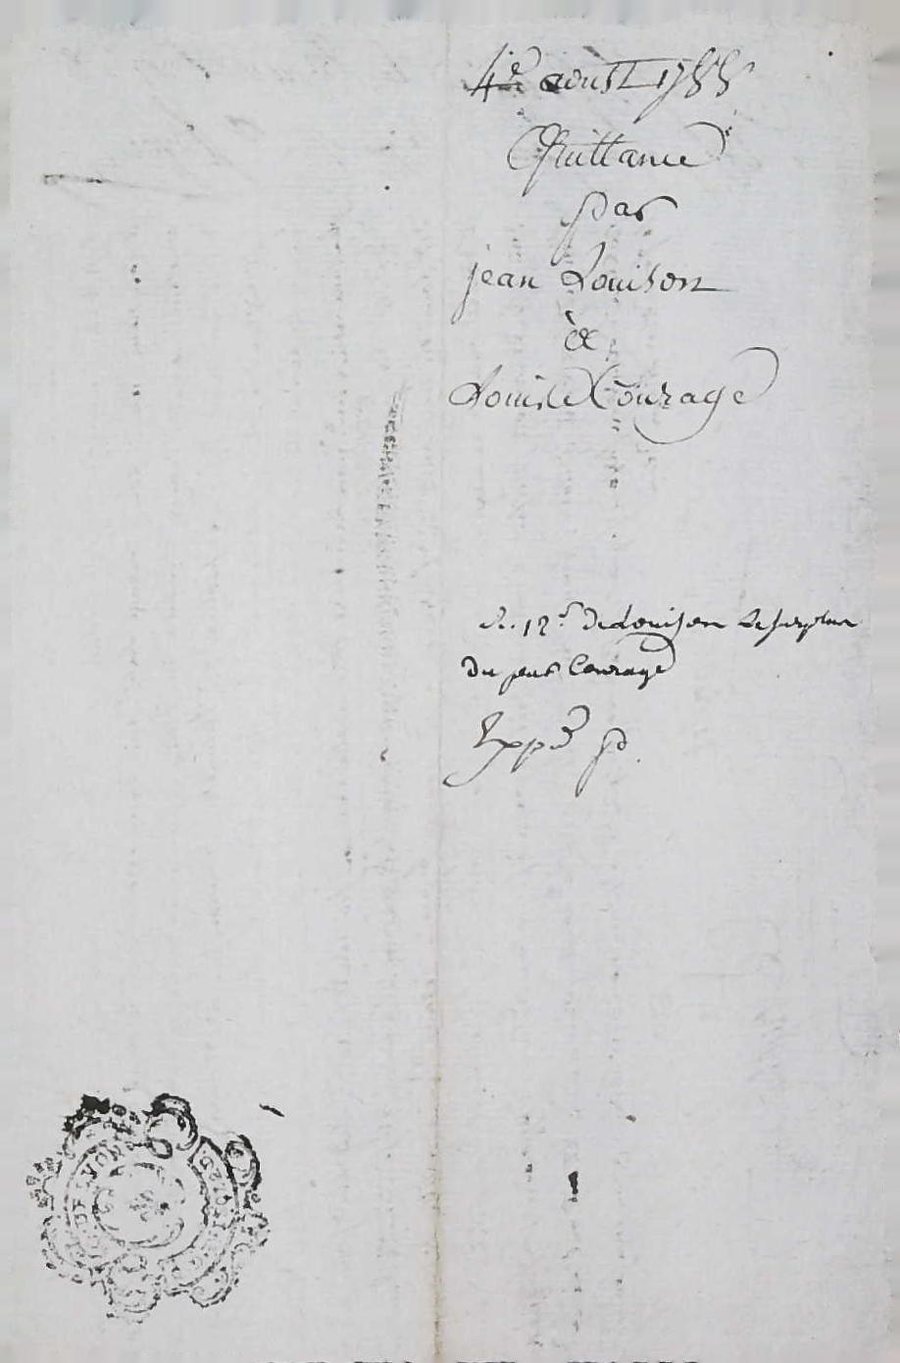 4e aoust 1755
Quittance
par
jean Louison
à
Louis Courage
12s de Louison Le surplus
du peut Courage
Exppé